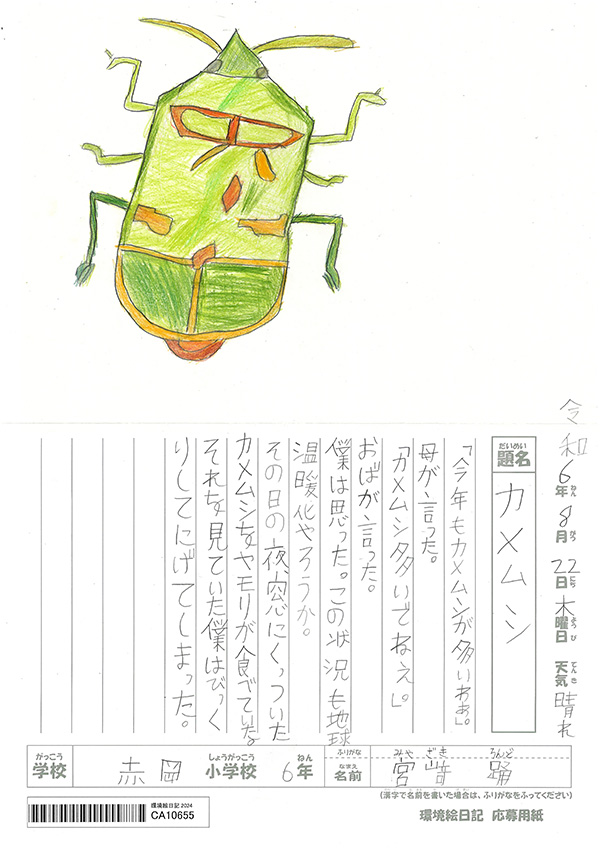 令和6年8月22日木曜日 天気晴れ
ねん がつ にち ようび てんき
だいめい
題名 カメムシ
「今年もカメムシが多いわぁ。」
母が言った。
「カメムシ多いでねぇ。」
おばが言った。
僕は思った。この状況も地球
温暖化やろうか。
その日の夜、窓にくっついた
カメムシをヤモリが食べていた。
それを見ていた僕はびっく
りしてにげてしまった。
がっこう しょうがっこう ねん ふりがな みや ざき ろんど
学校 赤岡 小学校 6年 なまえ 名前 宮﨑 踊
(漢字で名前を書いた場合は、ふりがなをふってください)
環境絵日記 2024
CA10655
環境絵日記 応募用紙